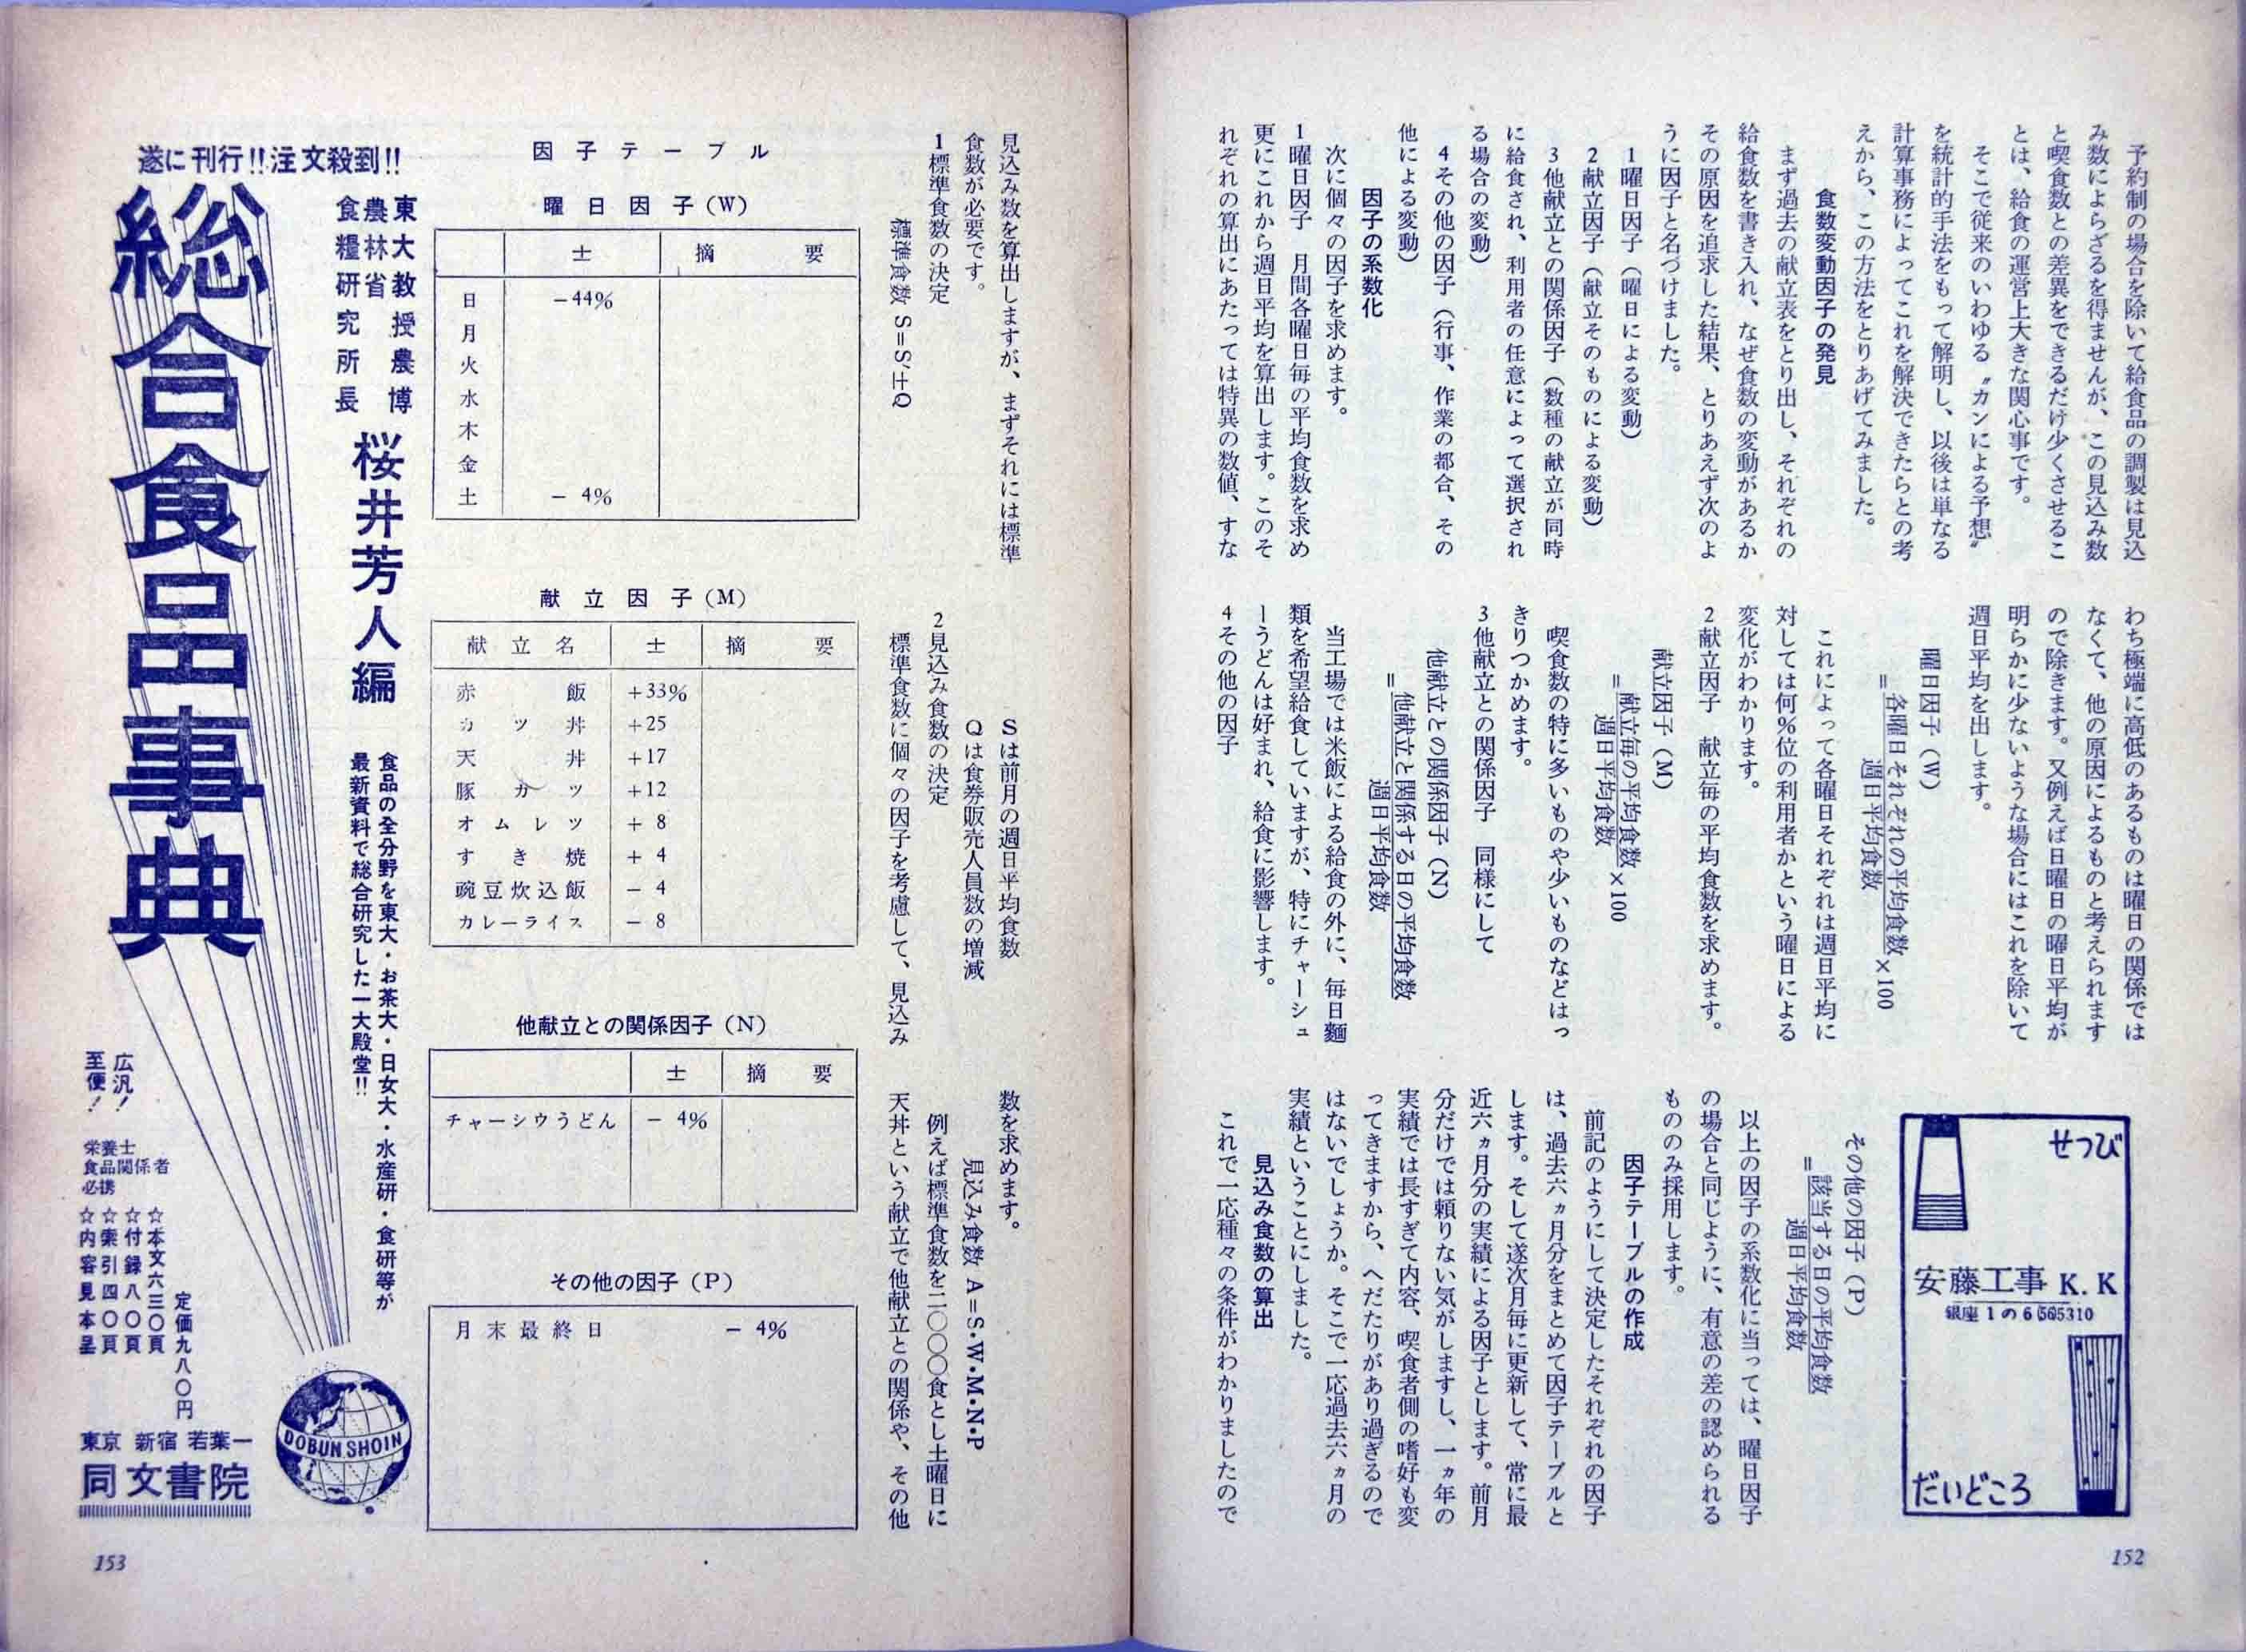 予約制の場合を除いて給食品の調製は見込
み数によらざるを得ませんが、この見込み数
と喫食数との差異をできるだけ少くさせるこ
とは、給食の運営上大きな関心事です。
そこで従来のいわゆる〝カンによる予想〟
を統計的手法をもって解明し、以後は単なる
計算事務によってこれを解決できたらとの考
えから、この方法をとりあげてみました。
食数変動因子の発見
まず過去の献立表をとり出し、それぞれの
給食数を書き入れ、なぜ食数の変動があるか
その原因を追求した結果、とりあえず次のよ
うに因子と名づけました。
1曜日因子（曜日による変動）
2献立因子（献立そのものによる変動）
3他献立との関係因子（数種の献立が同時
に給食され、利用者の任意によって選択され
る場合の変動）
4その他の因子（行事、作業の都合、その
他による変動）
因子の系数化
次に個々の因子を求めます。
1曜日因子　月間各曜日毎の平均食数を求め
更にこれから週日平均を算出します。このそ
れぞれの算出にあたっては特異の数値、すな
わち極端に高低のあるものは曜日の関係では
なくて、他の原因によるものと考えられます
ので除きます。又例えば日曜日の曜日平均が
明らかに少ないような場合にはこれを除いて
週日平均を出します。
曜日因子（W）
＝各曜日それぞれの平均食数×100
週日平均食数
これによって各曜日それぞれは週日平均に
対しては何％位の利用者かという曜日による
変化がわかります。
2献立因子　献立毎の平均食数を求めます。
献立因子（M）
＝献立毎の平均食数×100
週日平均食数
喫食数の特に多いものや少いものなどはっ
きりつかめます。
3他献立との関係因子　同様にして
他献立との関係因子（N）
＝他献立と関係する日の平均食数
週日平均食数
当工場では米飯による給食の外に、毎日麺
類を希望給食していますが、特にチャーシュ
ーうどんは好まれ、給食に影響します。
4その他の因子
せつび
安藤工事 K.K
銀座1の6 565310
だいどころ
その他の因子（P）
＝該当する日の平均食数
週日平均食数
以上の因子の系数化に当っては、曜日因子
の場合と同じように、有意の差の認められる
もののみ採用します。
因子テーブルの作成
前記のようにして決定したそれぞれの因子
は、過去六ヵ月分をまとめて因子テーブルと
します。そして遂次月毎に更新して、常に最
近六ヵ月分の実績による因子とします。前月
分だけでは頼りない気がしますし、一ヵ年の
実績では長すぎて内容、喫食者側の嗜好も変
ってきますから、へだたりがあり過ぎるので
はないでしょうか。そこで一応過去六ヵ月の
実績ということにしました。
見込み食数の算出
これで一応種々の条件がわかりましたので
152
見込み数を算出しますが、まずそれには標準
食数が必要です。
1標準食数の決定
標準食数 S=S'±Q
Sは前月の週日平均食数
Qは食券販売人員数の増減
2見込み食数の決定
標準食数に個々の因子を考慮して、見込み
数を求めます。
見込み食数 A=S・W・M・N・P
例えば標準食数を二〇〇〇食とし土曜日に
天丼という献立で他献立との関係や、その他
因子テーブル
曜日因子(W)
±　摘要
日　−44%
月
火
水
木
金
土　− 4%
献立因子(M)
献立名　±　摘要
赤飯　+33%
カツ丼　+25
天丼　+17
豚カツ　+12
オムレツ　+ 8
すき焼　+ 4
豌豆炊込飯　− 4
カレーライス　− 8
他献立との関係因子（N）
±　摘要
チャーシウうどん　− 4%
その他の因子（P）
月末最終日　− 4%
遂に刊行!!注文殺到!!
東大教授農博
農林省
食糧研究所長
桜井芳人編
総合食品事典
食品の全分野を東大・お茶大・日女大・水産研・食研等が
最新資料で総合研究した一大殿堂!!
広汎！
至便！
栄養士
食品関係者
必携
定価九八〇円
☆本文六三〇頁
☆付録八〇頁
☆索引四〇頁
☆内容見本呈
DOBUN SHOIN
東京 新宿 若葉一
同文書院
153